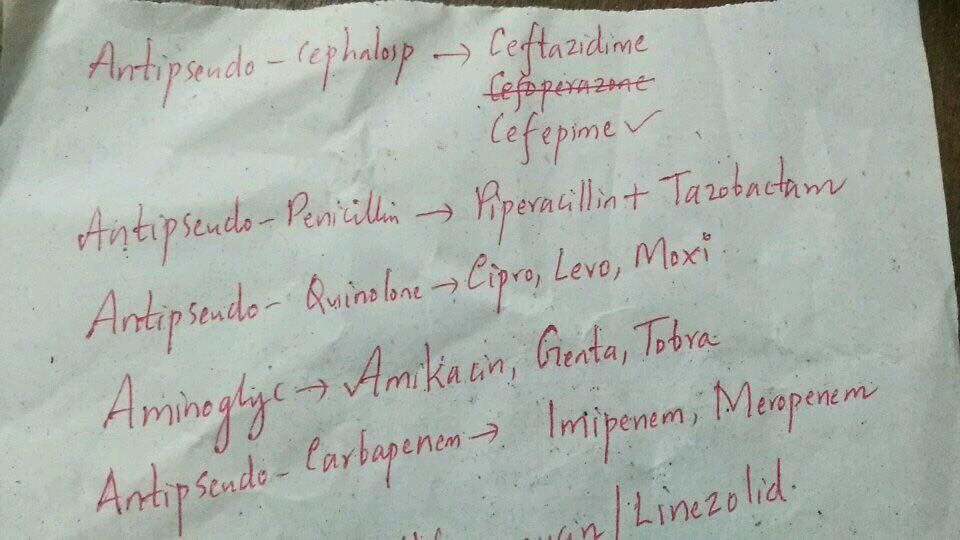 Antipseudo - Cephalosp → Ceftazidime
Cefoperazone
Cefepime ✓
Antipseudo - Penicillin → Piperacillin + Tazobactam
Antipseudo - Quinolone → Cipro, Levo, Moxi
Aminoglyc → Amikacin, Genta, Tobra
Antipseudo - Carbapenem → Imipenem, Meropenem
/ Linezolid.